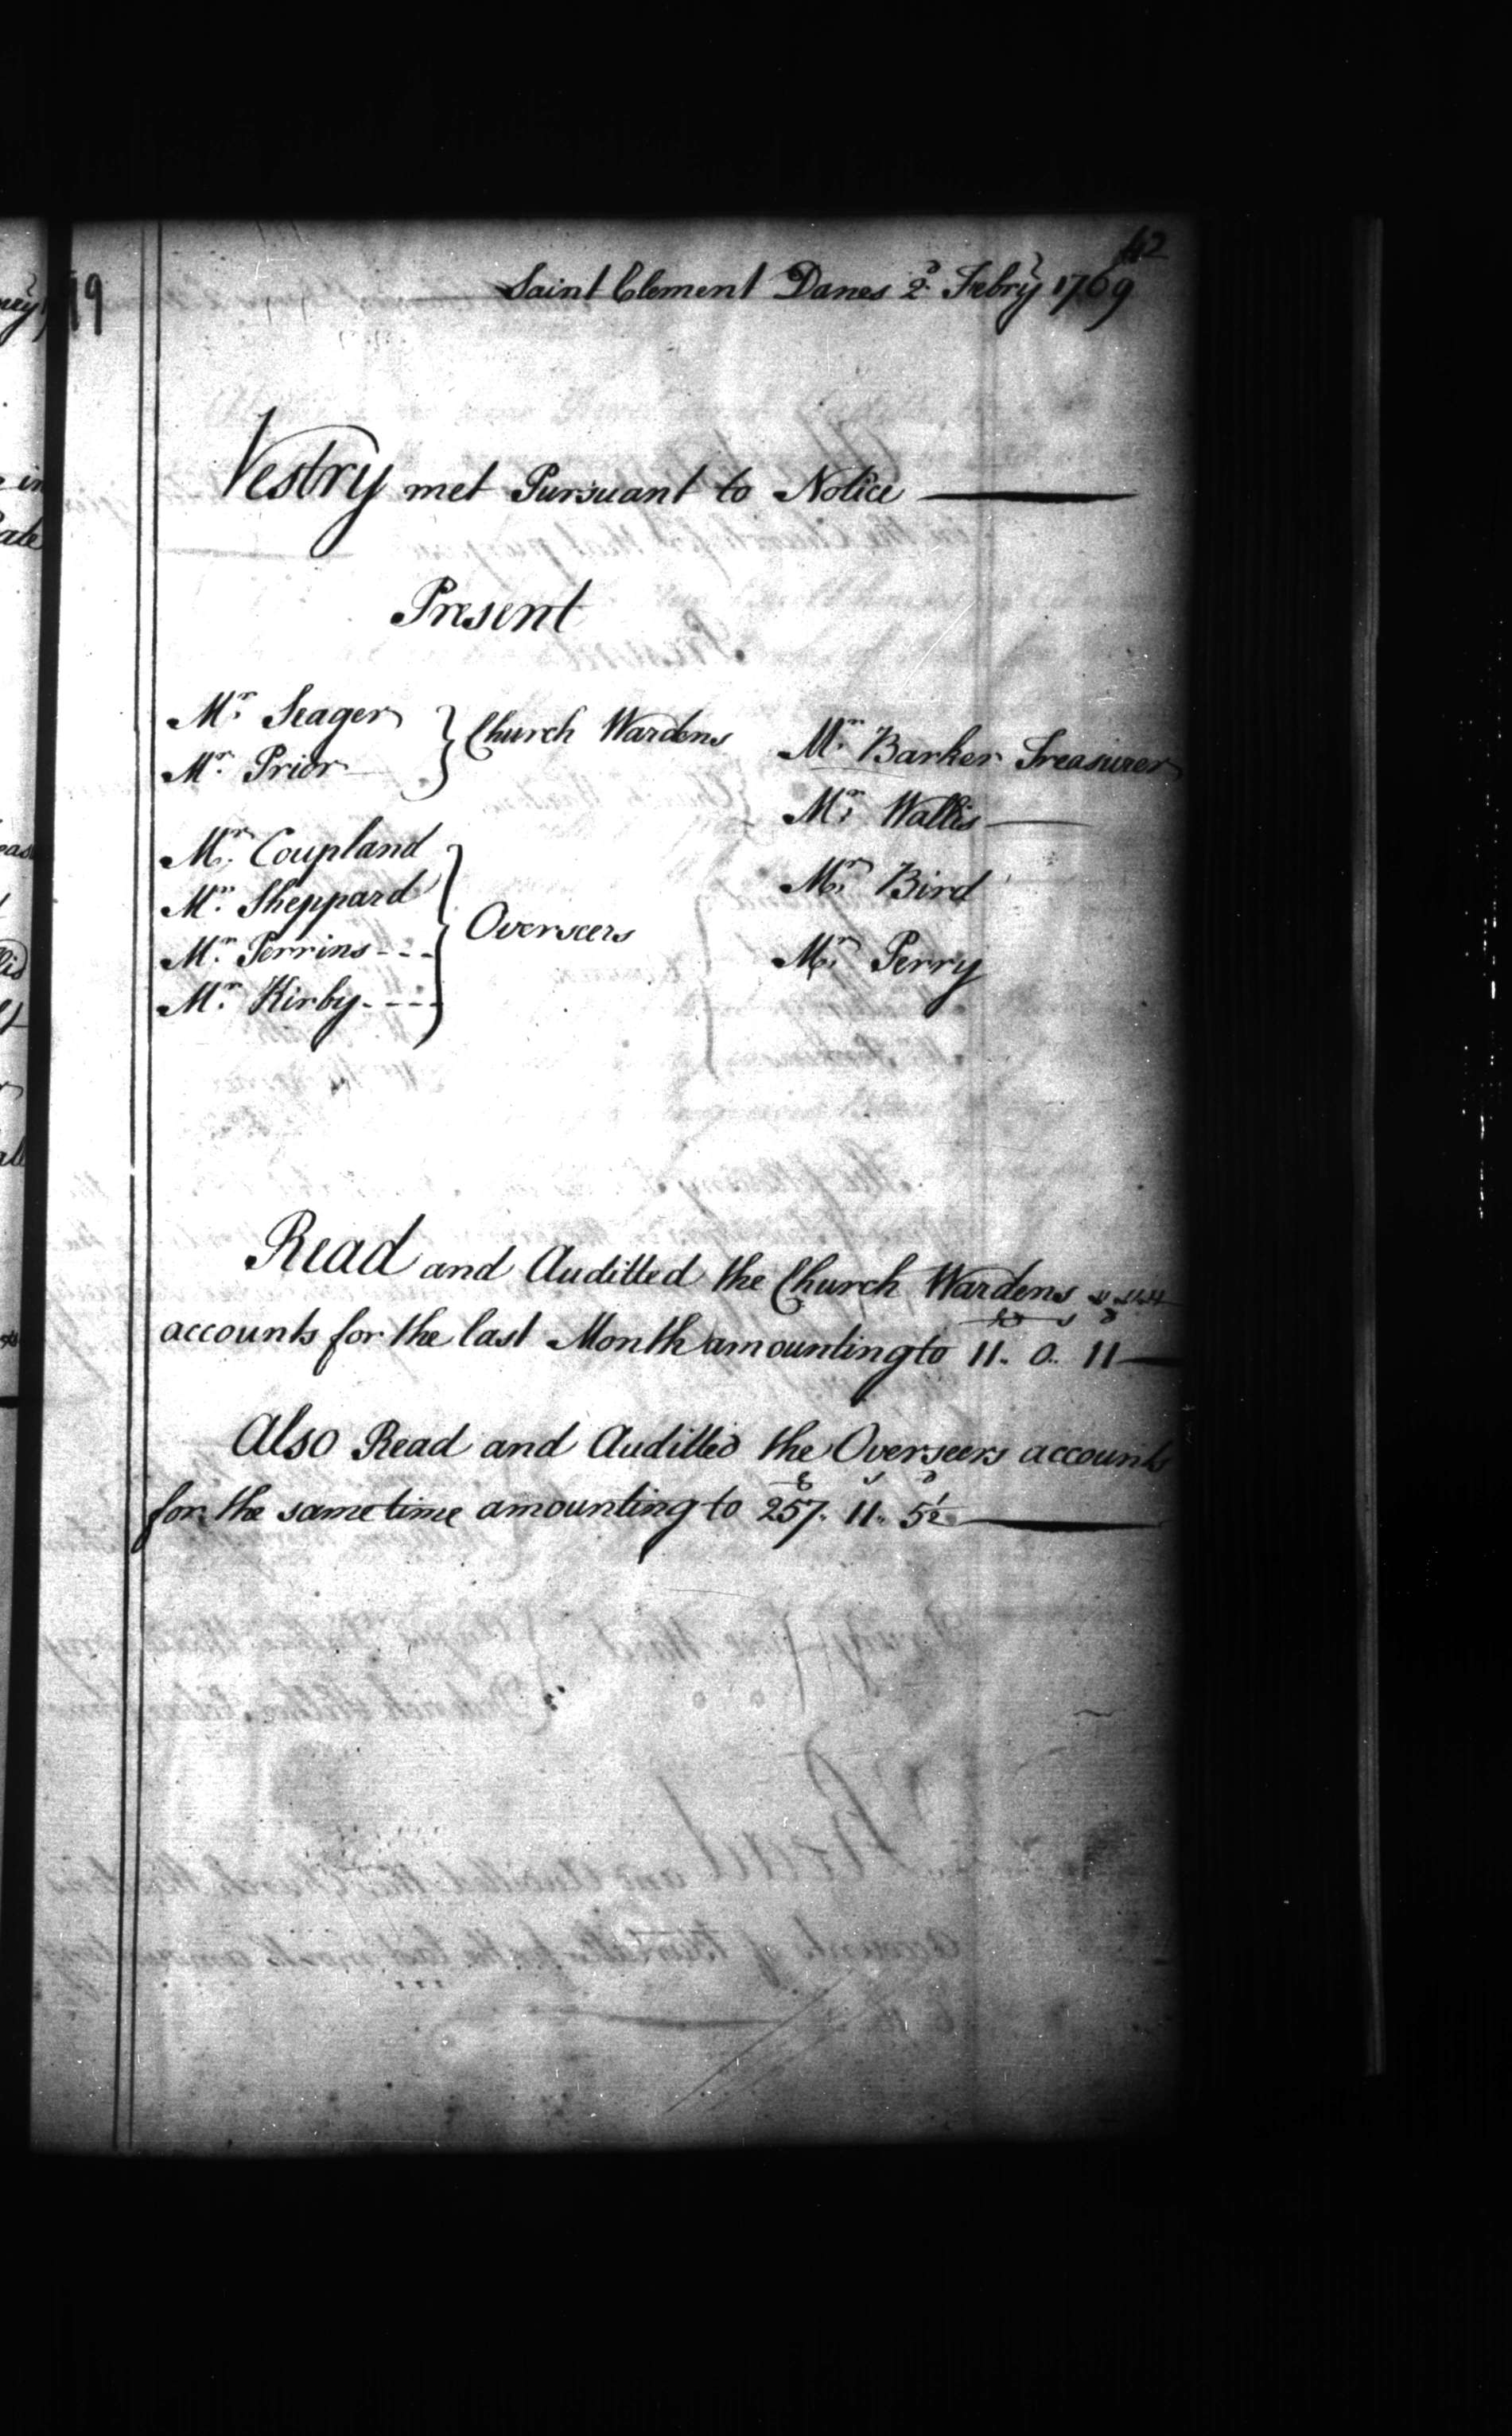 42
Saint Clement Danes 2d. Febry 1769
Vestry met Pursuant to Notice
Present
Mr. Seager
Mr. Prior
Church Wardens
Mr. Coupland
Mr. Sheppard
Mr. Perrins---
Mr. Kirby----
Overseers
Mr. Barker Treasurer
Mr. Wallis
Mr. Bird
Mr. Perry
Read and Auditted the Church Wardens
£ s d
accounts for the last Month amounting to 11. 0. 11
Also Read and Auditted the Overseers accounts
£ s d
for the same time amounting to 257. 11. 5½